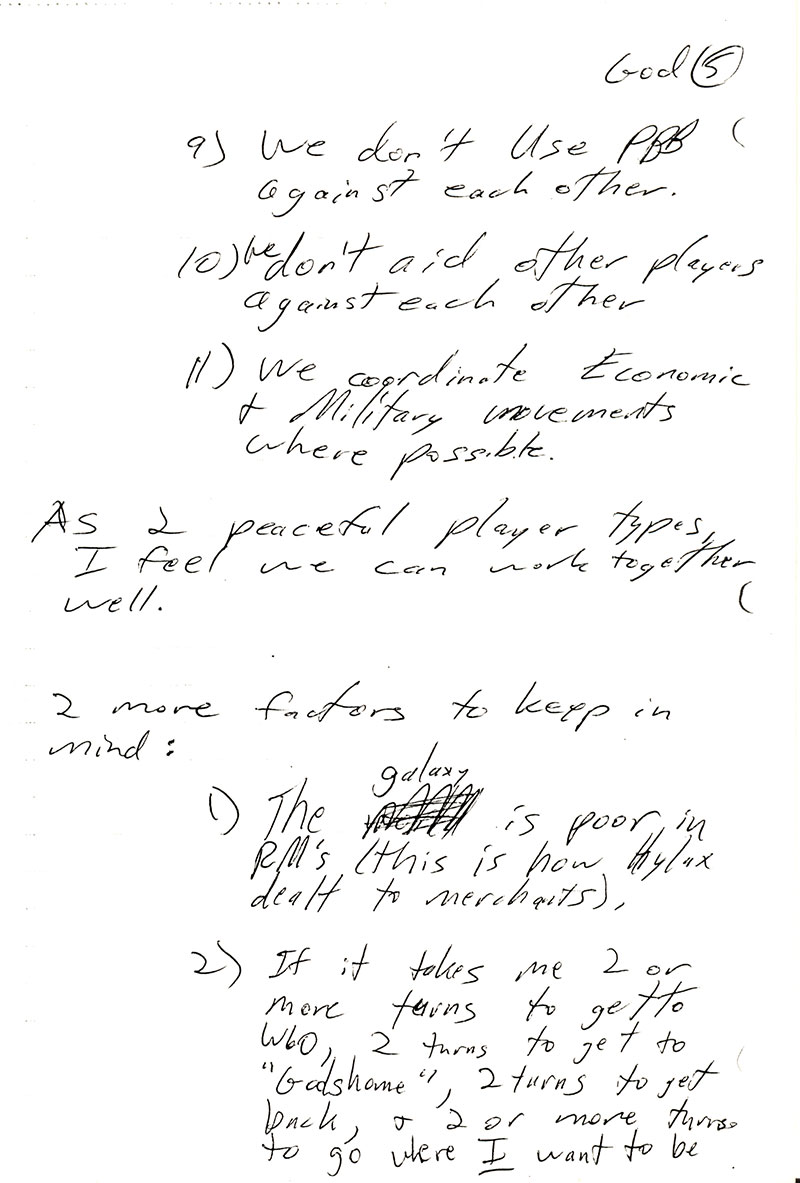 God (5)
9) We don't Use PBB
against each other.
10) We don't aid other players
against each other
11) We coordinate Economic
+ Military movements
where possible.
As 2 peaceful player types,
I feel we can work together
well.
2 more factors to keep in
mind:
galaxy
1) The is poor in
RM's (this is how Hylax
dealt to merchants),
2) If it takes me 2 or
more turns to get to
W60, 2 turns to get to
"Godshome", 2 turns to get
back, + 2 or more turns
to go where I want to be